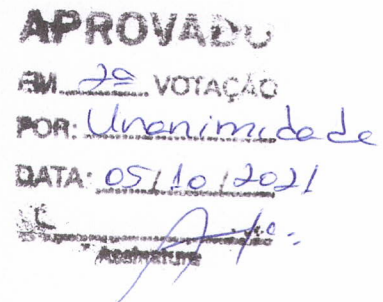 APROVADO
EM 2ª VOTAÇÃO
POR: Unanimidade
DATA: 05/10/2021
Assinatura